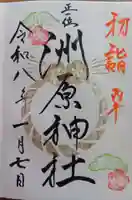 初詣
正位
洲原神社
令和八年一月七日